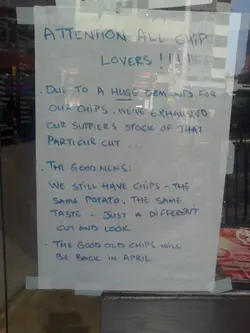 ATTENTION ALL CHIP
LOVERS !!!!
. DUE TO A HUGE DEMANDS FOR
OUR CHIPS. WE'VE EXHAUSTED
OUR SUPPLIERS STOCK OF THAT
PARTICULAR CUT ...
. THE GOOD NEWS:
WE STILL HAVE CHIPS - THE
SAME POTATO, THE SAME
TASTE - JUST A DIFFERENT
CUT AND LOOK
- THE GOOD OLD CHIPS WILL
BE BACK IN APRIL